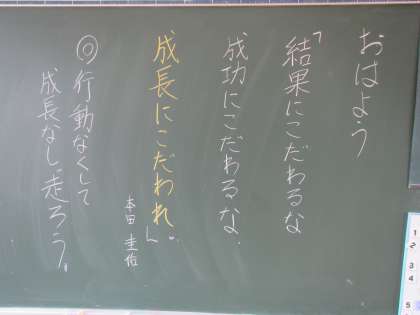 おはよう
「結果にこだわるな
成功にこだわるな.
成長にこだわれ。」
本田 圭佑
◎行動なくして
成長なし、走ろう。
1
2
3
4
5